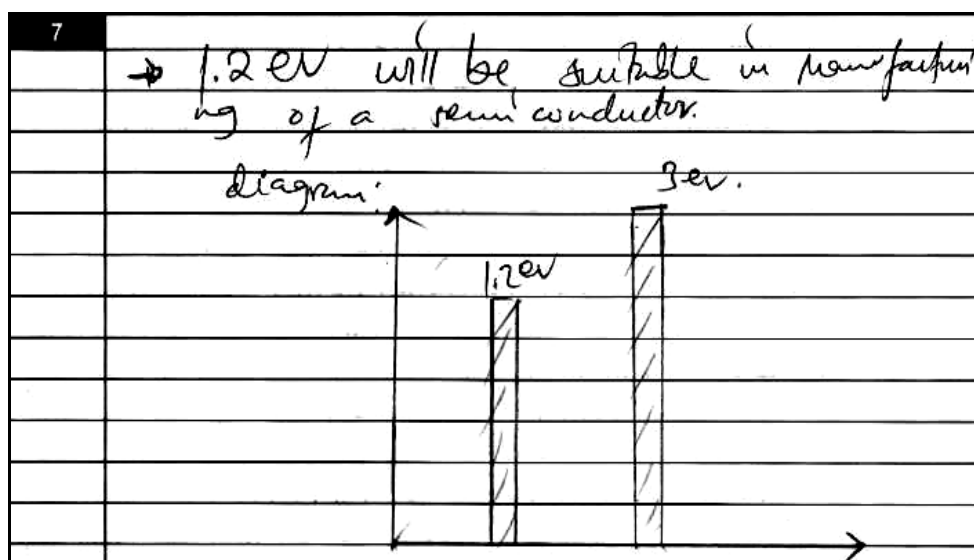 7
→ 1.2 eV will be suitable in manufacturi
ng of a semiconductor.
diagram:
3ev.
1.2ev